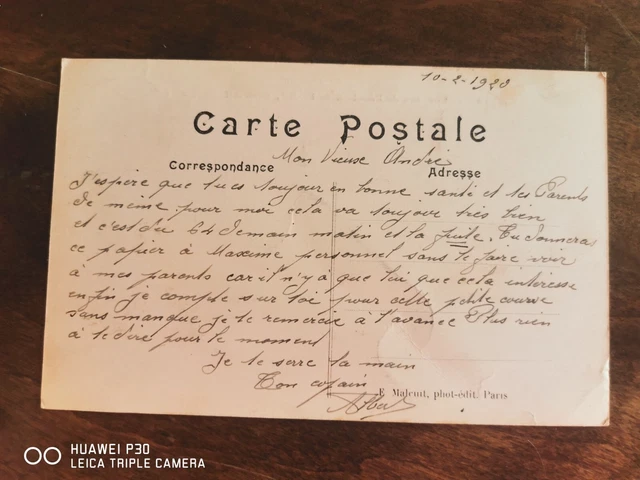 10-2-1920
Carte Postale
Mon Vieuse André
Correspondance
Adresse
J'espère que tu es toujour en bonne santé et tes Parents
de même pour moi cela va toujour très bien
et c'est du 64 demain matin et la fuite. Tu donneras
ce papier à Maxime personnel sans le faire voir
à mes parents car il n'y a que lui que cela intéresse
enfin je compte sur toi pour cette petite course
sans manque je te remercie à l'avance Plus rien
à te dire pour le moment
Je te serre la main
Ton copain
Albert
E. Malcuit, phot-édit. Paris
HUAWEI P30
LEICA TRIPLE CAMERA